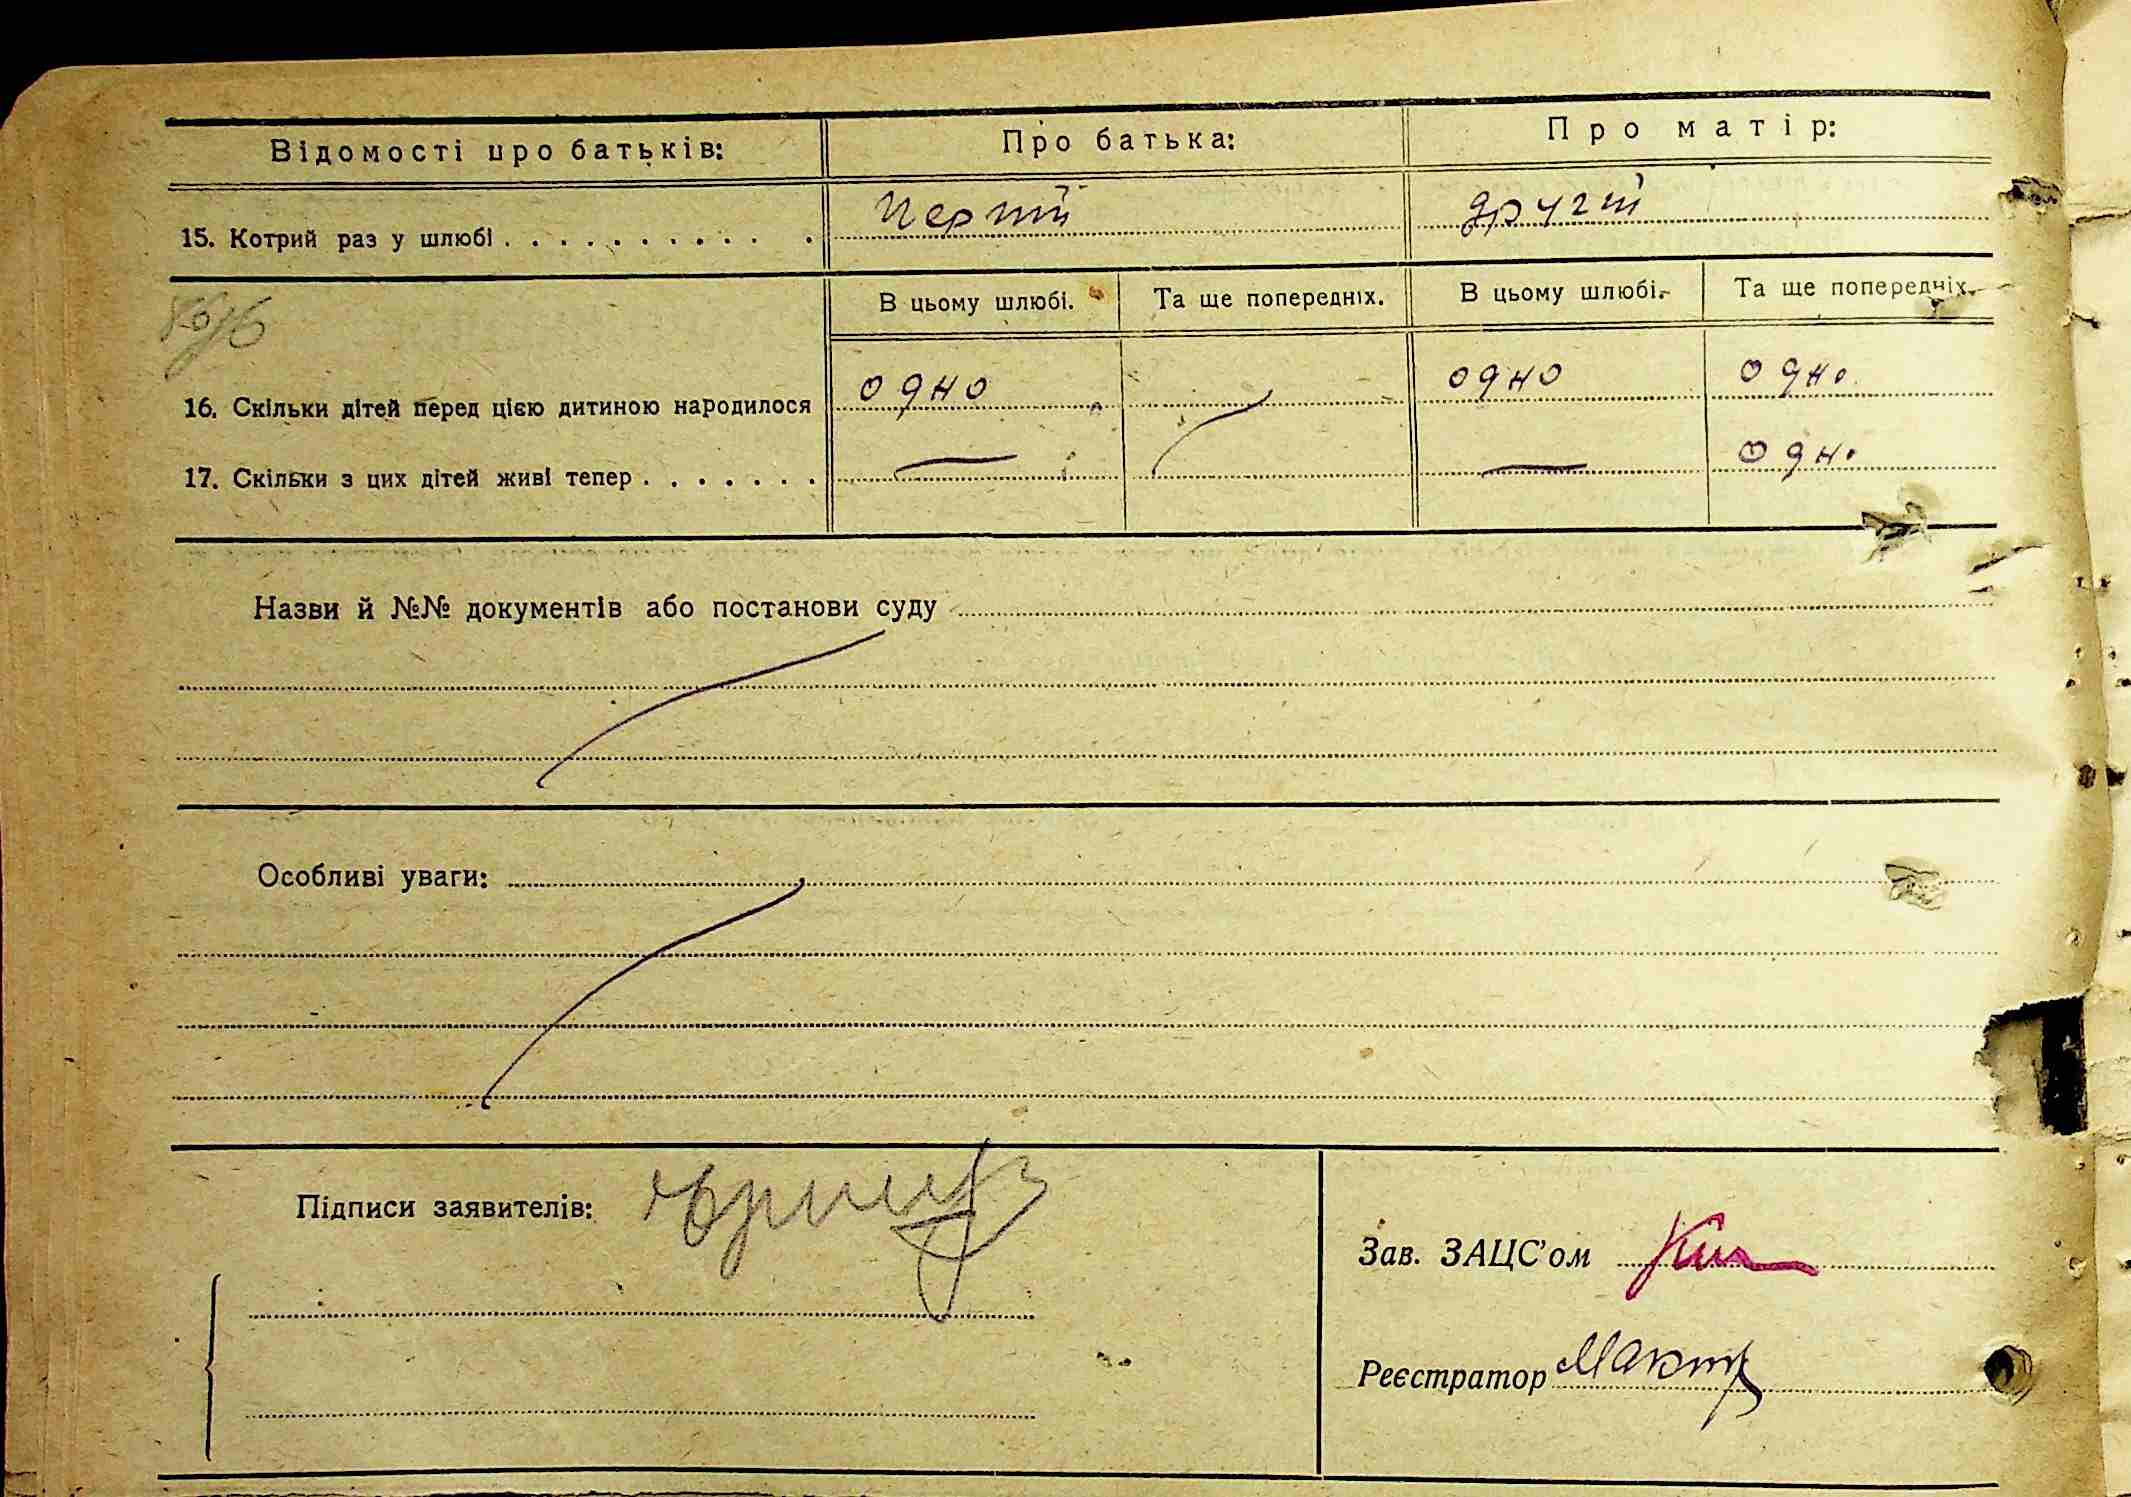 Відомості про батьків: Про батька: Про матір:
15. Котрий раз у шлюбі . . . . . . . . . . . перший другий
В цьому шлюбі. Та ще попередніх. В цьому шлюбі. Та ще попередніх.
16. Скільки дітей перед цією дитиною народилося одно одно одно
17. Скільки з цих дітей живі тепер . . . . . . . — — одно
Назви й №№ документів або постанови суду
Особливі уваги:
Підписи заявителів:
Зав. ЗАЦС’ом
Реєстратор